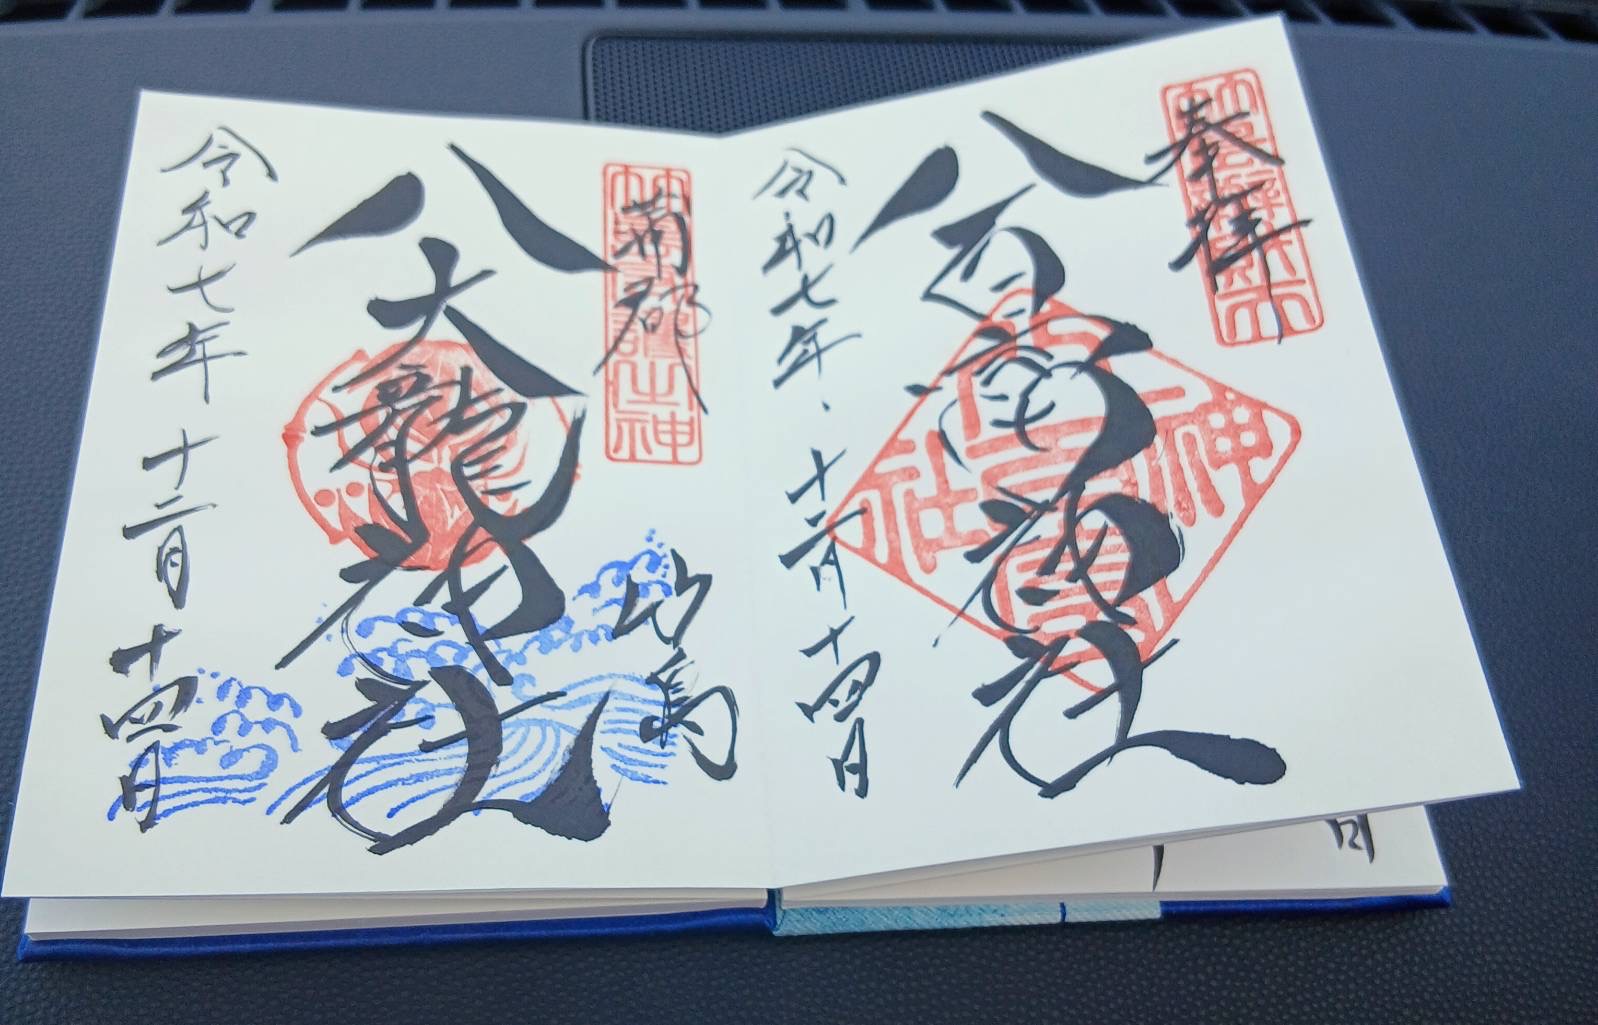 奉拝
八百富神社
八百富神社
令和七年十二月十四日
蒲郡
竹島
八大龍神社
令和七年十二月十四日